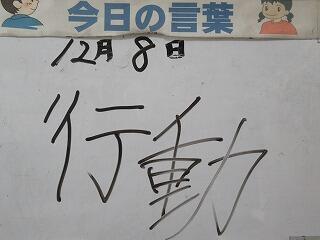 今日の言葉
12月8日
行動